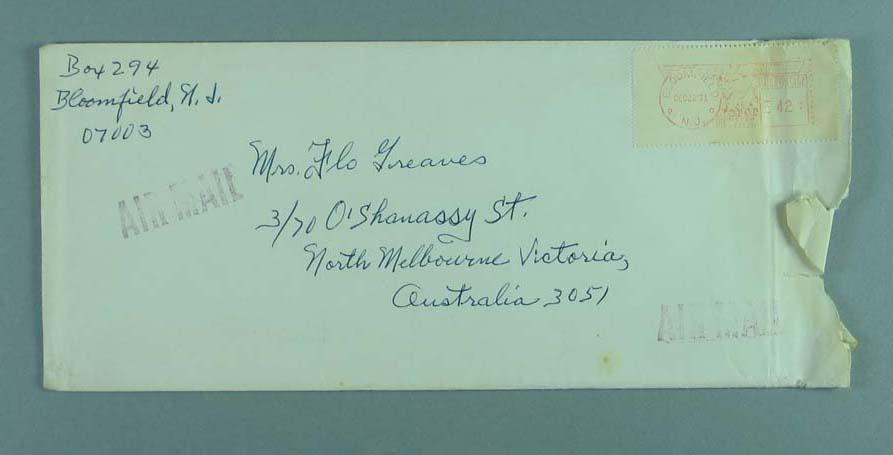 Box 294
Bloomfield, N. J.
07003
Mrs. Flo Greaves
3/70 O'Shanassy St.
North Melbourne Victoria,
Australia 3051
AIR MAIL
AIR MAIL
N.J.
42